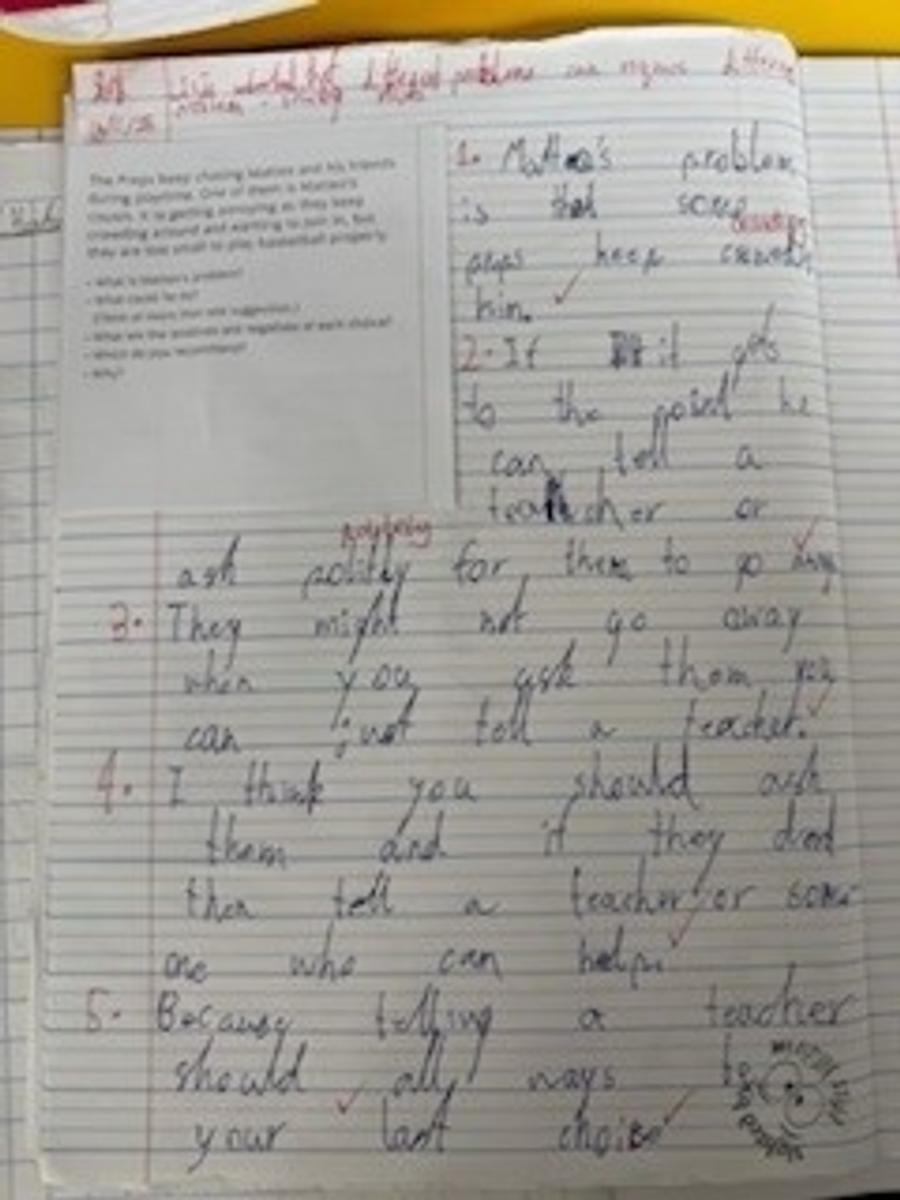 different problems can require
The Preps keep chasing Matteo and his friends
during playtime. One of them is Matteo's
cousin. It is getting annoying as they keep
crowding around and wanting to join in, but
they are too small to play basketball properly.
• What is Matteo's problem?
• What could he do?
(Think of more than one suggestion.)
• What are the positives and negatives of each choice?
• Which do you recommend?
• Why?
1. Matteo's problem
is that some
preps keep
him.
2. If it gets
to the point he
can tell a
teacher or
ask for them to go
3. They might not go away
when you ask them you
can just tell a teacher.
4. I think you should ask
them and if they
then tell a teacher or some
one who can help.
5. Because telling a teacher
should all ways be
your last